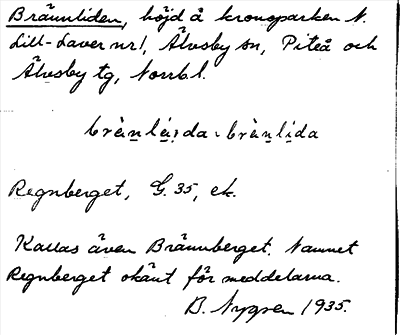 Brännliden, höjd å kronoparken N.
Lill-Laver nr 1, Älvsby sn, Piteå och
Älvsby tg, Norrb. l.
Regnberget, G. 35, ek.
Kallas även Brännberget. Namnet
Regnberget okänt för meddelarna.
B. Nygren 1935.